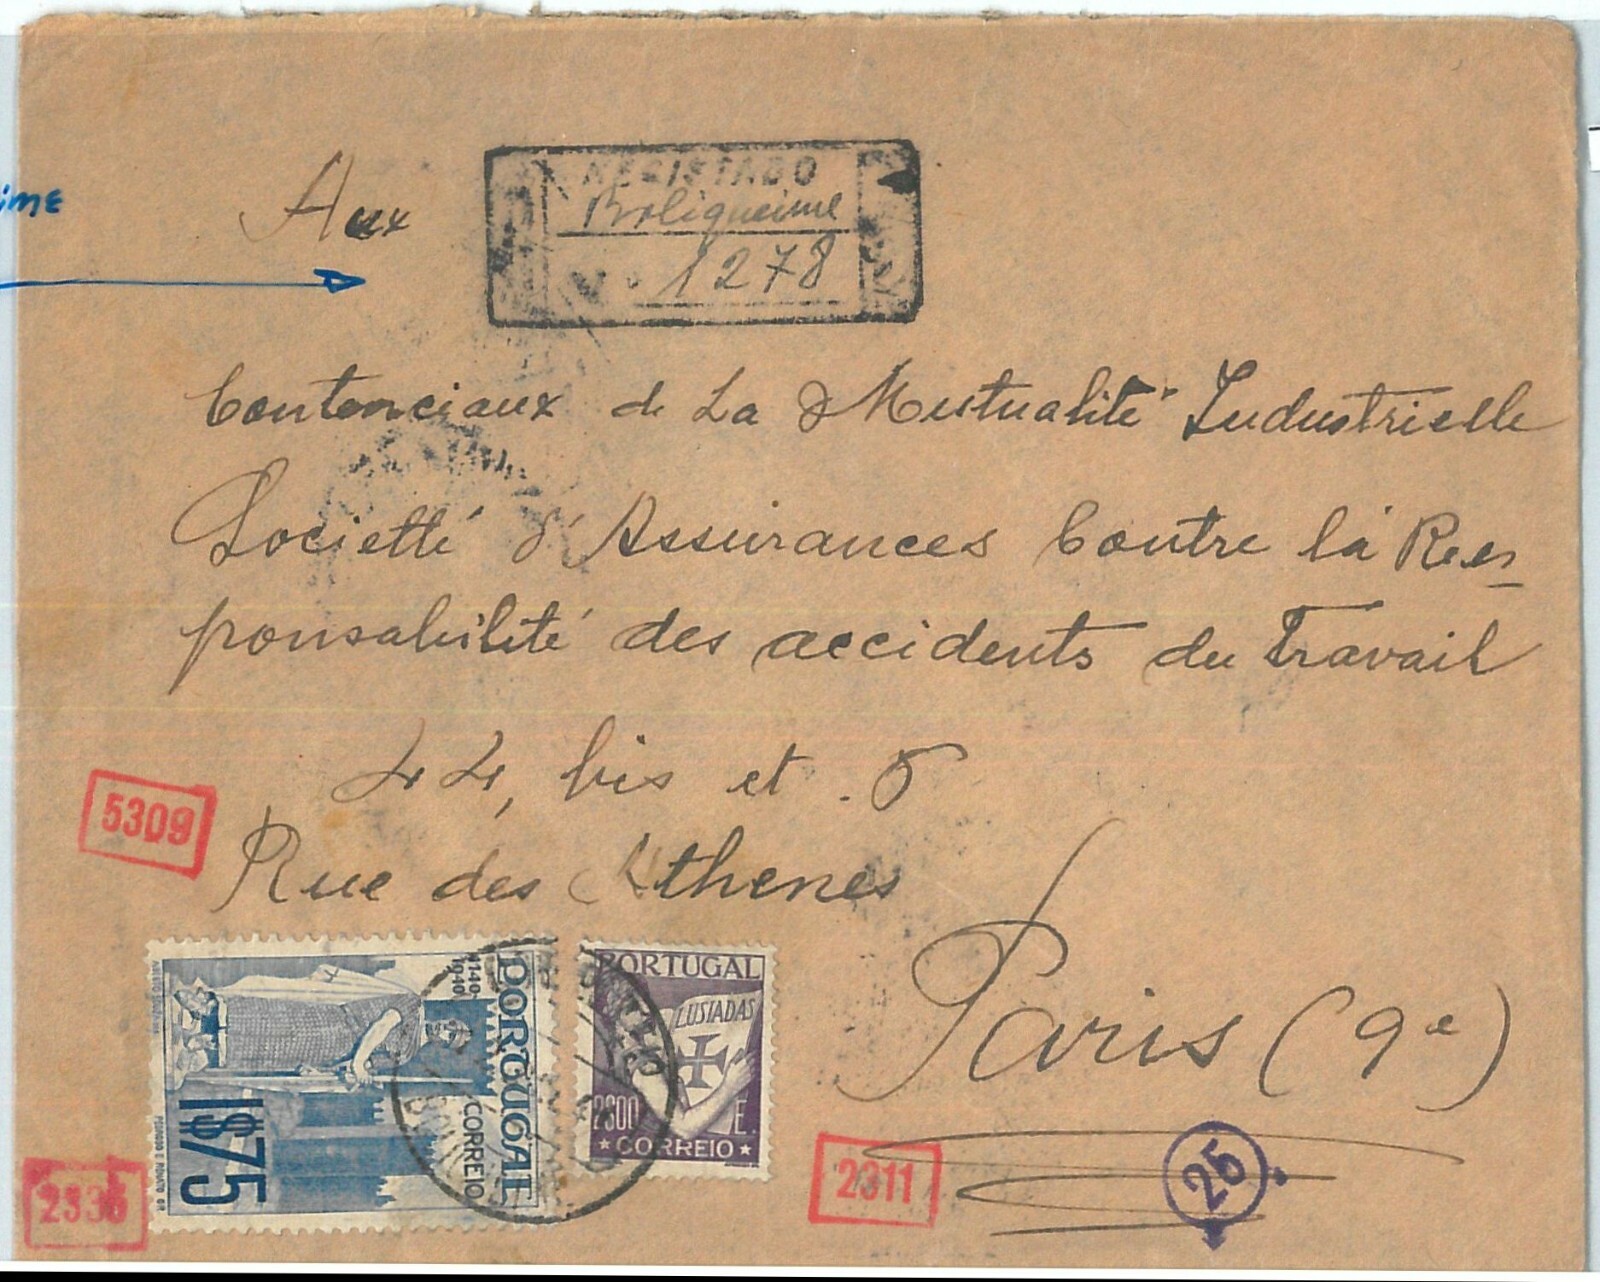 Aux
REGISTADO
Boliqueime
Nº 1278
Contenciaux de La Mutualité Industrielle
Societté d'Assurances Contre la Res-
ponsabilité des accidents du Travail
44, bis et 5
Rue des Athenes
Paris (9e)
5309
2336
2311
25
PORTUGAL
1140-1940
CORREIO
1$75
PORTUGAL
LUSIADAS
2$00 E.
CORREIO